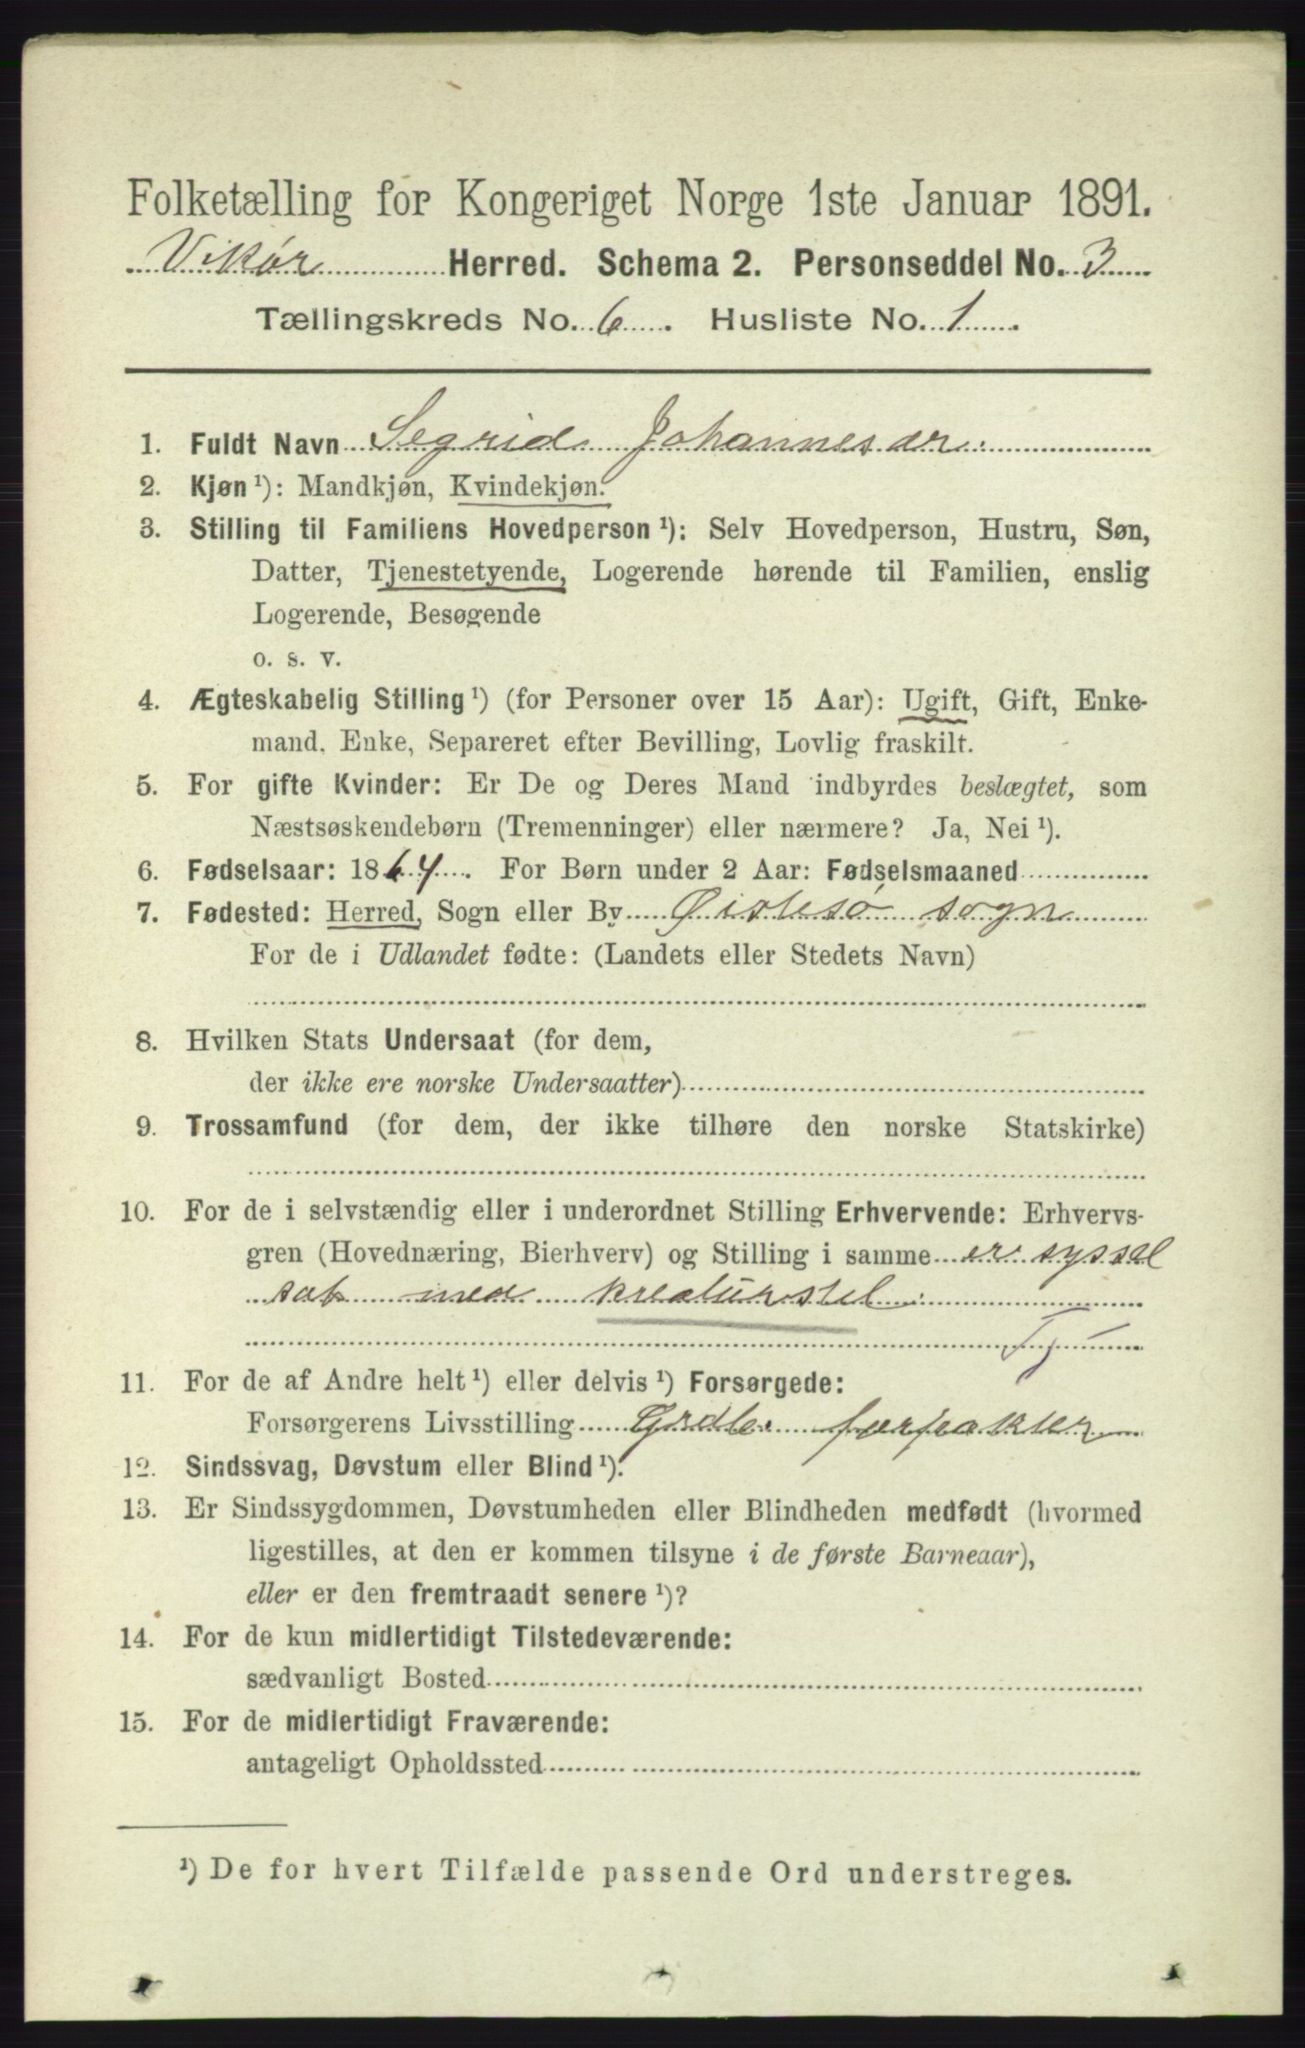 Folketælling for Kongeriget Norge 1ste Januar 1891.
Vikør Herred. Schema 2. Personseddel No. 3
Tællingskreds No. 6. Husliste No. 1.
1. Fuldt Navn Segrid Johannesdr.
2. Kjøn ¹): Mandkjøn, Kvindekjøn.
3. Stilling til Familiens Hovedperson ¹): Selv Hovedperson, Hustru, Søn,
Datter, Tjenestetyende, Logerende hørende til Familien, enslig
Logerende, Besøgende
o. s. v.
4. Ægteskabelig Stilling ¹) (for Personer over 15 Aar): Ugift, Gift, Enke-
mand, Enke, Separeret efter Bevilling, Lovlig fraskilt.
5. For gifte Kvinder: Er De og Deres Mand indbyrdes beslægtet, som
Næstsøskendebørn (Tremenninger) eller nærmere? Ja, Nei ¹).
6. Fødselsaar: 1864. For Børn under 2 Aar: Fødselsmaaned
7. Fødested: Herred, Sogn eller By Øistesø sogn
For de i Udlandet fødte: (Landets eller Stedets Navn)
8. Hvilken Stats Undersaat (for dem,
der ikke ere norske Undersaatter)
9. Trossamfund (for dem, der ikke tilhøre den norske Statskirke)
10. For de i selvstændig eller i underordnet Stilling Erhvervende: Erhvervs-
gren (Hovednæring, Bierhverv) og Stilling i samme er syssel
sat med kreaturstel.
Tj
11. For de af Andre helt ¹) eller delvis ¹) Forsørgede:
Forsørgerens Livsstilling
12. Sindssvag, Døvstum eller Blind ¹).
13. Er Sindssygdommen, Døvstumheden eller Blindheden medfødt (hvormed
ligestilles, at den er kommen tilsyne i de første Barneaar),
eller er den fremtraadt senere ¹)?
14. For de kun midlertidigt Tilstedeværende:
sædvanligt Bosted
15. For de midlertidigt Fraværende:
antageligt Opholdssted
¹) De for hvert Tilfælde passende Ord understreges.